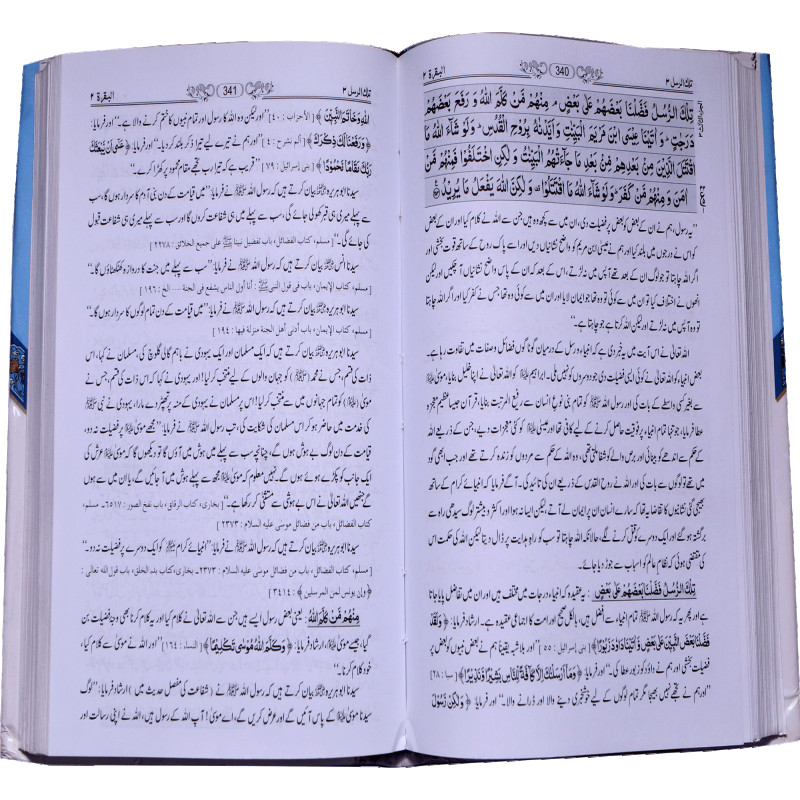 تلك الرسل ٣ 340 البقرة ٢
تِلْكَ الرُّسُلُ فَضَّلْنَا بَعْضَهُمْ عَلٰى بَعْضٍ ۘ مِنْهُمْ مَّنْ كَلَّمَ اللّٰهُ وَ رَفَعَ بَعْضَهُمْ
دَرَجٰتٍ ؕ وَ اٰتَيْنَا عِيْسَى ابْنَ مَرْيَمَ الْبَيِّنٰتِ وَ اَيَّدْنٰهُ بِرُوْحِ الْقُدُسِ ؕ وَ لَوْ شَآءَ اللّٰهُ مَا
اقْتَتَلَ الَّذِيْنَ مِنْۢ بَعْدِهِمْ مِّنْۢ بَعْدِ مَا جَآءَتْهُمُ الْبَيِّنٰتُ وَ لٰكِنِ اخْتَلَفُوْا فَمِنْهُمْ مَّنْ
اٰمَنَ وَ مِنْهُمْ مَّنْ كَفَرَ ؕ وَ لَوْ شَآءَ اللّٰهُ مَا اقْتَتَلُوْا ۫ وَ لٰكِنَّ اللّٰهَ يَفْعَلُ مَا يُرِيْدُ
”یہ رسول، ہم نے ان کے بعض کو بعض پر فضیلت دی، ان میں سے کچھ وہ ہیں، جن سے اللہ نے کلام کیا اور ان کے بعض
کو اس نے درجوں میں بلند کیا اور ہم نے عیسیٰ ابن مریم کو واضح نشانیاں دیں اور اسے پاک روح کے ساتھ قوت بخشی اور
اگر اللہ چاہتا تو جو لوگ ان کے بعد تھے آپس میں نہ لڑتے، اس کے بعد کہ ان کے پاس واضح نشانیاں آ چکیں اور لیکن
انھوں نے اختلاف کیا تو ان میں سے کوئی تو وہ تھا جو ایمان لایا اور ان میں سے کوئی وہ تھا، جس نے کفر کیا اور اگر اللہ چاہتا
تو وہ آپس میں نہ لڑتے اور لیکن اللہ کرتا ہے جو چاہتا ہے۔“
اللہ تعالیٰ نے اس آیت میں یہ خبر دی ہے کہ انبیاء و رسل کے درمیان گوناگوں فضائل و صفات میں تفاوت رہا ہے۔
بعض انبیاء کو اللہ تعالیٰ نے کوئی ایسی فضیلت دی جو دوسروں کو نہیں ملی۔ ابراہیم علیہ السلام کو اللہ تعالیٰ نے اپنا خلیل بنایا، موسیٰ علیہ السلام
سے بغیر کسی واسطے کے بات کی اور رسول اللہ ﷺ کو تمام بنی نوع انسان سے رفیع المرتبت بنایا، قرآن جیسا عظیم معجزہ
عطا فرمایا، جو تنہا تمام انبیاء پر فوقیت حاصل کرنے کے لیے کافی تھا اور عیسیٰ علیہ السلام کو کئی معجزات دیے، جن کے ذریعے اللہ
کے حکم سے اندھے کو بینائی اور برص والے کو شفا ملتی تھی، وہ اللہ کے حکم سے مردوں کو زندہ کرتے تھے اور جب ابھی گود
میں تھے تو لوگوں سے بات کی اور اللہ نے روح القدس کے ذریعے ان کی تائید کی۔ آگے فرمایا کہ انبیائے کرام کے ساتھ
بھیجی گئی نشانیوں کا تقاضا یہ تھا کہ سارے لوگ ان پر ایمان لے آتے، لیکن ایسا نہ ہوا اور اکثر و بیشتر لوگ سیدھی راہ سے
برگشتہ ہو گئے اور ایک دوسرے کو قتل کرنے لگے، حالانکہ اللہ چاہتا تو سب کو راہِ ہدایت پر ڈال دیتا لیکن اللہ کی حکمت اس
کی مقتضی ہوئی کہ نظامِ عالم کو اسباب سے جوڑ دیا جائے۔
تِلْكَ الرُّسُلُ فَضَّلْنَا بَعْضَهُمْ عَلٰى بَعْضٍ : یہ عقیدہ کہ انبیاء درجات میں مختلف ہیں اور ان میں تفاضل پایا جاتا
ہے اور پھر یہ کہ رسول اللہ ﷺ تمام انبیاء سے افضل ہیں، بالکل صحیح اور امت کا اجماعی عقیدہ ہے۔ ارشاد فرمایا: ﴿ وَ لَقَدْ
فَضَّلْنَا بَعْضَ النَّبِيّٖنَ عَلٰى بَعْضٍ وَّ اٰتَيْنَا دَاوٗدَ زَبُوْرًا ﴾ [ بنی إسرائیل : ٥٥ ] ”اور بلاشبہ یقیناً ہم نے بعض نبیوں کو بعض پر
فضیلت بخشی اور ہم نے داؤد کو زبور عطا کی۔“ اور فرمایا: ﴿ وَ مَاۤ اَرْسَلْنٰكَ اِلَّا كَآفَّةً لِّلنَّاسِ بَشِيْرًا وَّ نَذِيْرًا ﴾ [ سبا : ٢٨ ]
”اور ہم نے تجھے نہیں بھیجا مگر تمام لوگوں کے لیے خوشخبری دینے والا اور ڈرانے والا۔“ اور فرمایا: ﴿ وَ لٰكِنْ رَّسُوْلَ
تلك الرسل ٣ 341 البقرة ٢
اللّٰهِ وَ خَاتَمَ النَّبِيّٖنَ ﴾ [ الأحزاب : ٤٠ ] ”اور لیکن وہ اللہ کا رسول اور تمام نبیوں کا ختم کرنے والا ہے۔“ اور فرمایا:
﴿ وَ رَفَعْنَا لَكَ ذِكْرَكَ ﴾ [ الم نشرح : ٤ ] ”اور ہم نے تیرے لیے تیرا ذکر بلند کر دیا۔“ اور فرمایا: ﴿ عَسٰۤى اَنْ يَّبْعَثَكَ
رَبُّكَ مَقَامًا مَّحْمُوْدًا ﴾ [ بنی إسرائیل : ٧٩ ] ”قریب ہے کہ تیرا رب تجھے مقامِ محمود پر کھڑا کرے۔“
سیدنا ابوہریرہ رضی اللہ عنہ بیان کرتے ہیں کہ رسول اللہ ﷺ نے فرمایا: ”میں قیامت کے دن بنی آدم کا سردار ہوں گا، سب
سے پہلے میری ہی قبر کھولی جائے گی، سب سے پہلے میں ہی شفاعت کروں گا اور سب سے پہلے میری ہی شفاعت قبول
کی جائے گی۔“ [ مسلم، کتاب الفضائل، باب تفضیل نبینا ﷺ علی جمیع الخلائق : ٢٢٧٨ ]
سیدنا انس رضی اللہ عنہ بیان کرتے ہیں کہ رسول اللہ ﷺ نے فرمایا: ”سب سے پہلے میں جنت کا دروازہ کھٹکھٹاؤں گا۔“
[ مسلم، کتاب الإیمان، باب فی قول النبی ﷺ : أنا أول الناس یشفع فی الجنة ... الخ : ١٩٦ ]
سیدنا ابوہریرہ رضی اللہ عنہ بیان کرتے ہیں کہ رسول اللہ ﷺ نے فرمایا: ”میں قیامت کے دن تمام لوگوں کا سردار ہوں گا۔“
[ مسلم، کتاب الإیمان، باب أدنی أهل الجنة منزلة فیها : ١٩٤ ]
سیدنا ابوہریرہ رضی اللہ عنہ بیان کرتے ہیں کہ ایک مسلمان اور ایک یہودی نے باہم گالی گلوچ کی، مسلمان نے کہا، اس
ذات کی قسم، جس نے محمد (ﷺ) کو جہان والوں کے لیے منتخب کر لیا! اور یہودی نے کہا کہ اس ذات کی قسم، جس نے
موسیٰ (علیہ السلام) کو تمام جہانوں میں سے منتخب کر لیا! اس پر مسلمان نے یہودی کے منہ پر تھپڑ دے مارا، یہودی نے نبی ﷺ
کی خدمت میں حاضر ہو کر اس مسلمان کی شکایت کی، تب رسول اللہ ﷺ نے فرمایا: ”مجھے موسیٰ علیہ السلام پر فضیلت نہ دو،
قیامت کے دن لوگ بے ہوش ہوں گے، چنانچہ سب سے پہلے میں ہوش میں آؤں گا تو دیکھوں گا کہ موسیٰ علیہ السلام عرش کی
ایک جانب کو پکڑے ہوئے ہوں گے۔ نہیں معلوم کہ موسیٰ علیہ السلام مجھ سے پہلے ہوش میں آ جائیں گے، یا ان میں سے ہوں
گے جنھیں اللہ تعالیٰ نے اس بے ہوشی سے مستثنیٰ کر رکھا ہے۔“ [ بخاری، کتاب الرقاق، باب نفخ الصور : ٦٥١٧۔ مسلم،
کتاب الفضائل، باب من فضائل موسٰی علیه السلام : ٢٣٧٣ ]
سیدنا ابوہریرہ رضی اللہ عنہ بیان کرتے ہیں کہ رسول اللہ ﷺ نے فرمایا: ”انبیائے کرام علیہم السلام کو ایک دوسرے پر فضیلت نہ دو۔“
[ مسلم، کتاب الفضائل، باب من فضائل موسٰی علیه السلام : ٢٣٧٣۔ بخاری، کتاب بدء الخلق، باب قول الله تعالی :
﴿ وإن یونس لمن المرسلین ﴾ : ٣٤١٤ ]
مِنْهُمْ مَّنْ كَلَّمَ اللّٰهُ : یعنی بعض رسول ایسے ہیں جن سے اللہ تعالیٰ نے کلام کیا اور یہ کلام کرنا بھی وجہِ فضیلت بن
گیا، جیسے موسیٰ علیہ السلام، ارشاد فرمایا: ﴿ وَ كَلَّمَ اللّٰهُ مُوْسٰى تَكْلِيْمًا ﴾ [ النساء : ١٦٤ ] ”اور اللہ نے موسیٰ سے کلام کیا،
خود کلام کرنا۔“
سیدنا ابوہریرہ رضی اللہ عنہ بیان کرتے ہیں کہ رسول اللہ ﷺ نے ( شفاعت کی مفصل حدیث میں ) ارشاد فرمایا: ”لوگ
موسیٰ علیہ السلام کے پاس آئیں گے اور عرض کریں گے، اے موسیٰ! آپ اللہ کے رسول ہیں، اللہ نے اپنی رسالت اور